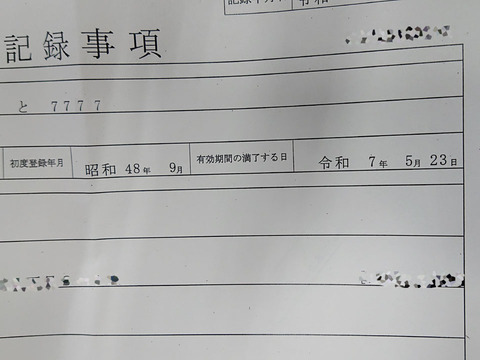 令和
記録事項
と 7777
初度登録年月 昭和 48年 9月 有効期間の満了する日 令和 7年 5月 23日